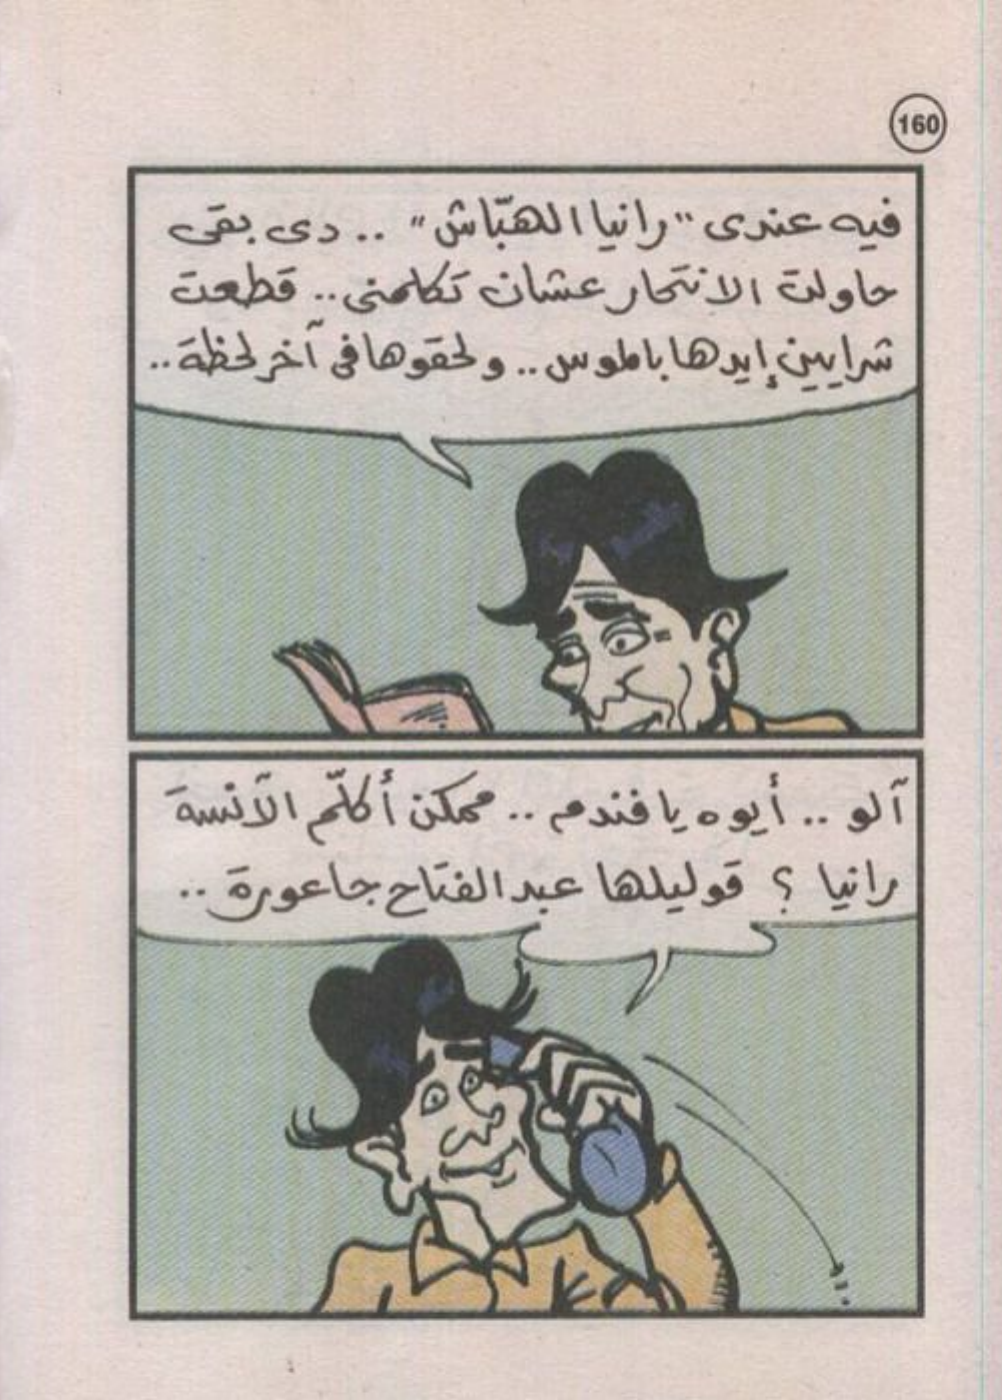 160
فيه عندى "رانيا الهبّاش" .. دى بقى
حاولت الانتحار عشان تكلمنى .. قطعت
شرايين إيدها بالموس .. ولحقوها فى آخر لحظة ..
آلو .. أيوه يا فندم .. ممكن أكلّم الآنسة
رانيا ؟ قوليلها عبد الفتاح جاعورة ..